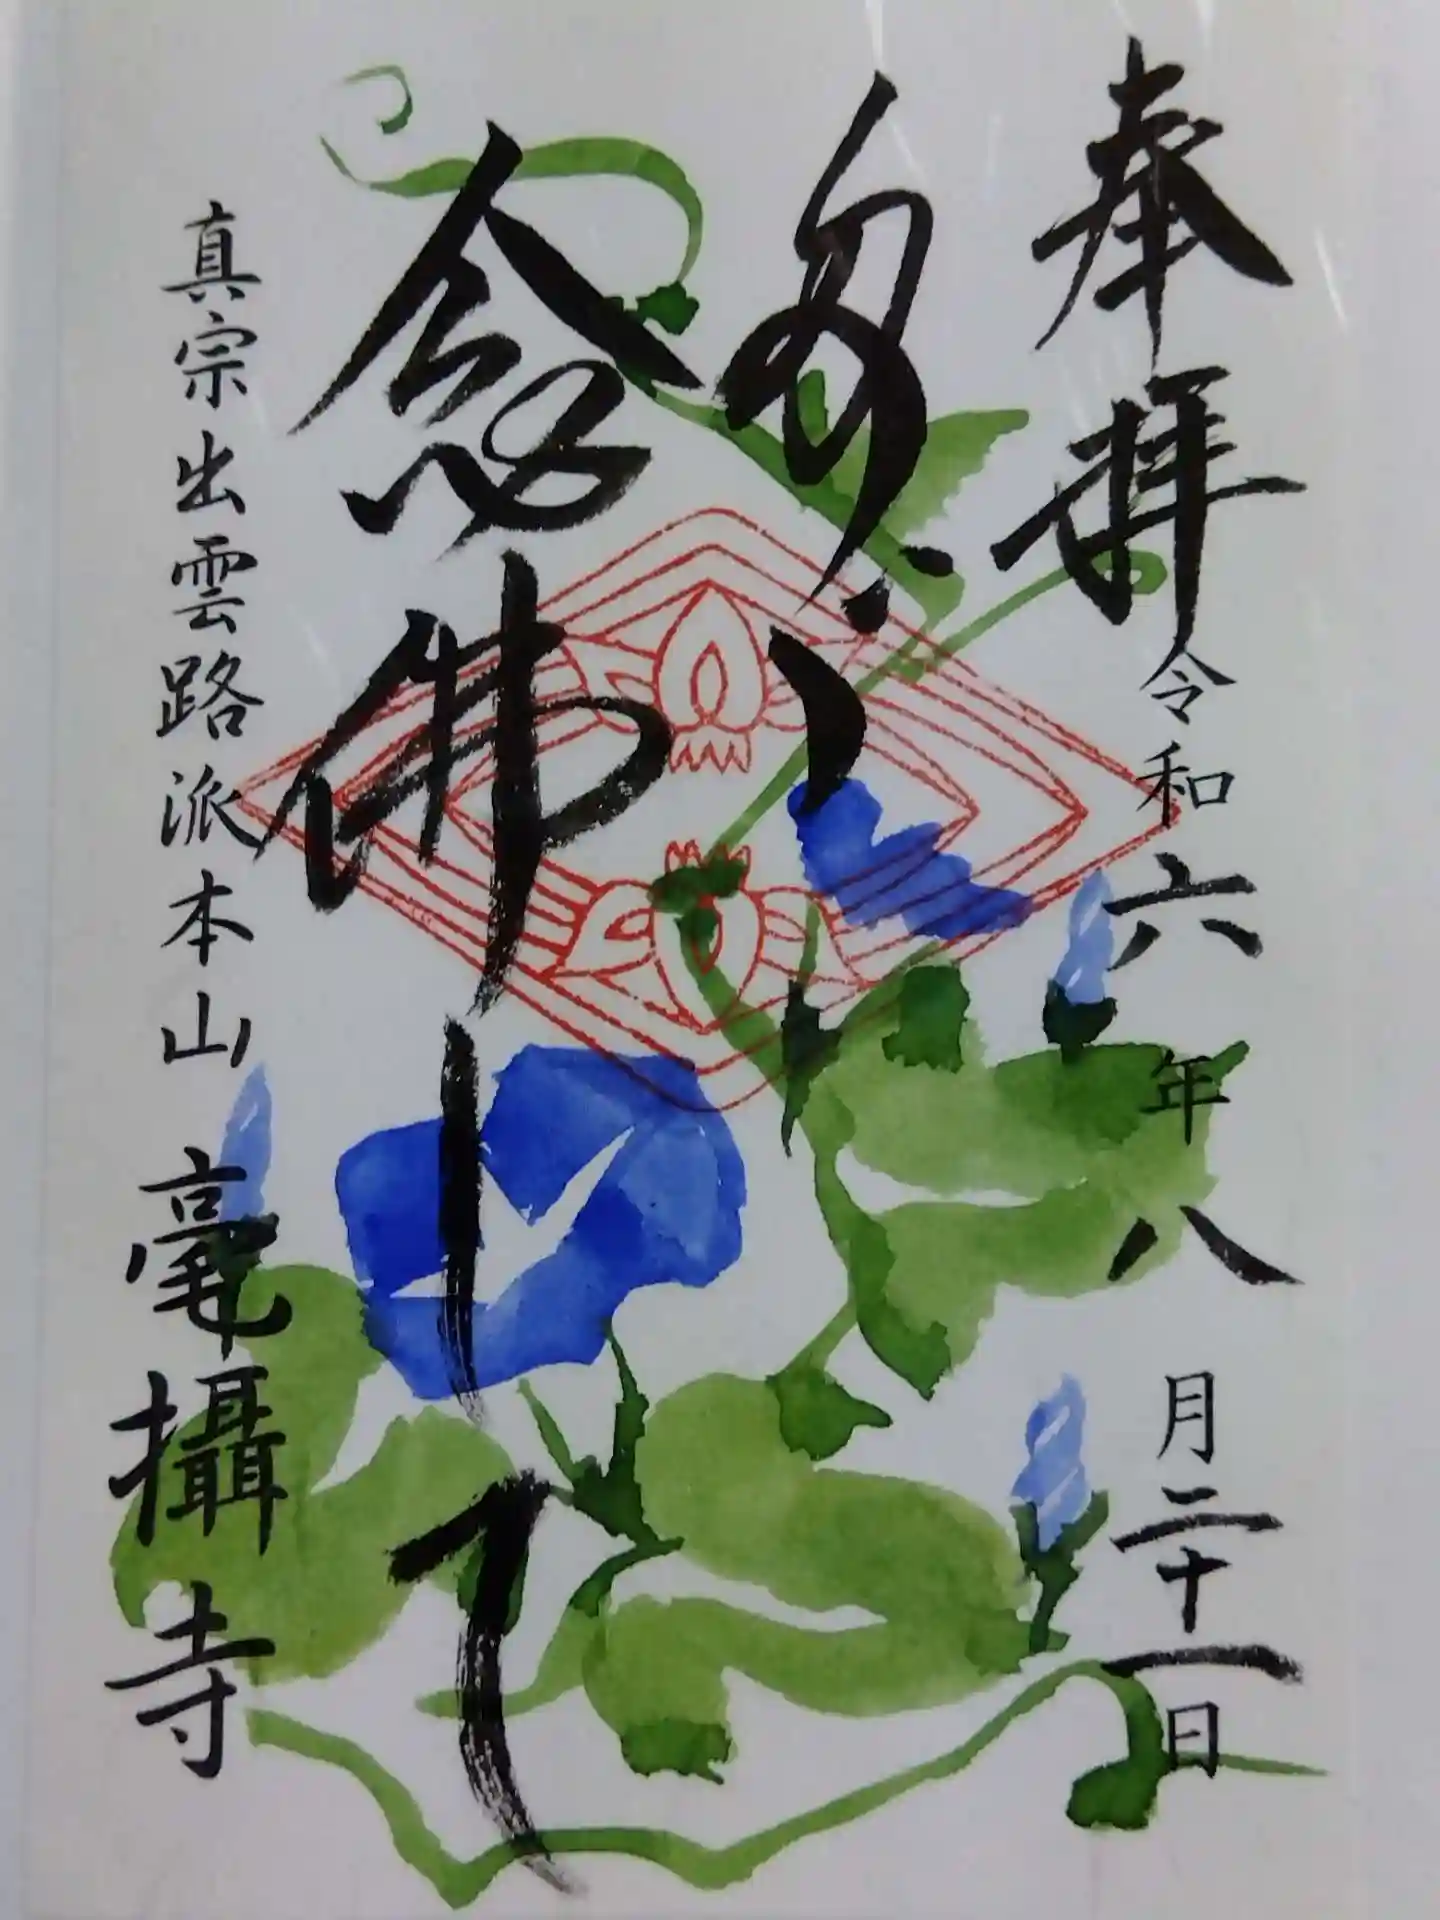 奉拝 令和六年八月二十一日
念佛して
真宗出雲路派本山 毫攝寺